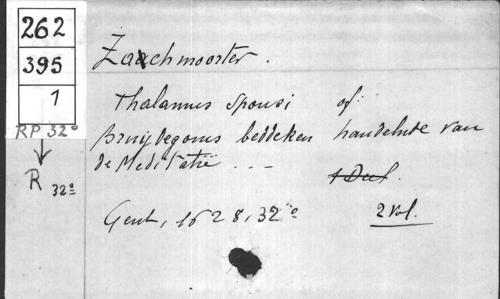 262
395
1
RP 32º
R 32º
Zachmoorter.
Thalamus sponsi of
Bruijdegoms beddeken handelnde van
de Meditatie ...
1 Deel.
Gent, 1628, 32º
2 vol.